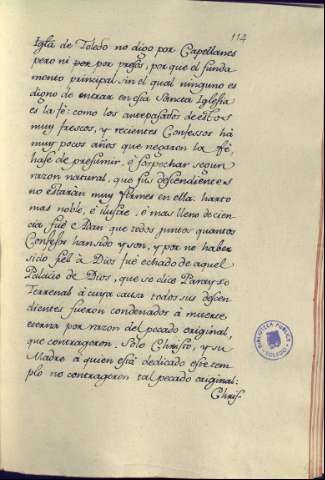 114
Iglã de Toledo no digo por Capellanes
pero ni por por presos, porque el funda
mento principal, sin el qual ninguno es
digno de entrar en esta Sancta Iglesia
es la fé: como los antepasados de estos
muy frescos, y recientes Confessos há
muy pocos años que negaron la fé,
hase de presumir, ó sospechar segun
razon natural, que sus descendientes
no estarán muy firmes en ella. harto
mas noble, é Ilustre, é mas lleno de cien
cia fué Adan que todos juntos quantos
Confesos han sido y son, y por no haber
sido fiel á Dios fué echado de aquel
Palacio de Dios, que se dice Parayso
Terrenal á cuya causa todos sus descen
dientes fueron condenados á muerte
eterna por razon del pecado original,
que contrageron. Solo Christo, y su
Madre á quien está dedicado este tem
plo no contrageron tal pecado original:
Chris-
BIBLIOTECA PUBLICA
TOLEDO